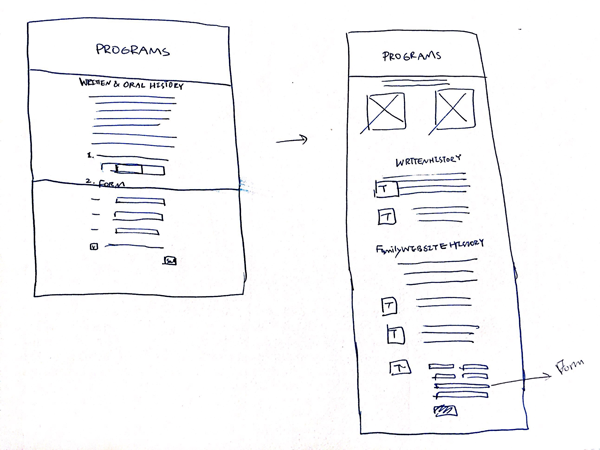 PROGRAMS
WRITTEN & ORAL HISTORY
1.
2. FORM
PROGRAMS
WRITTEN HISTORY
T
T
Family WEBSITE HISTORY
T
T
T
Form